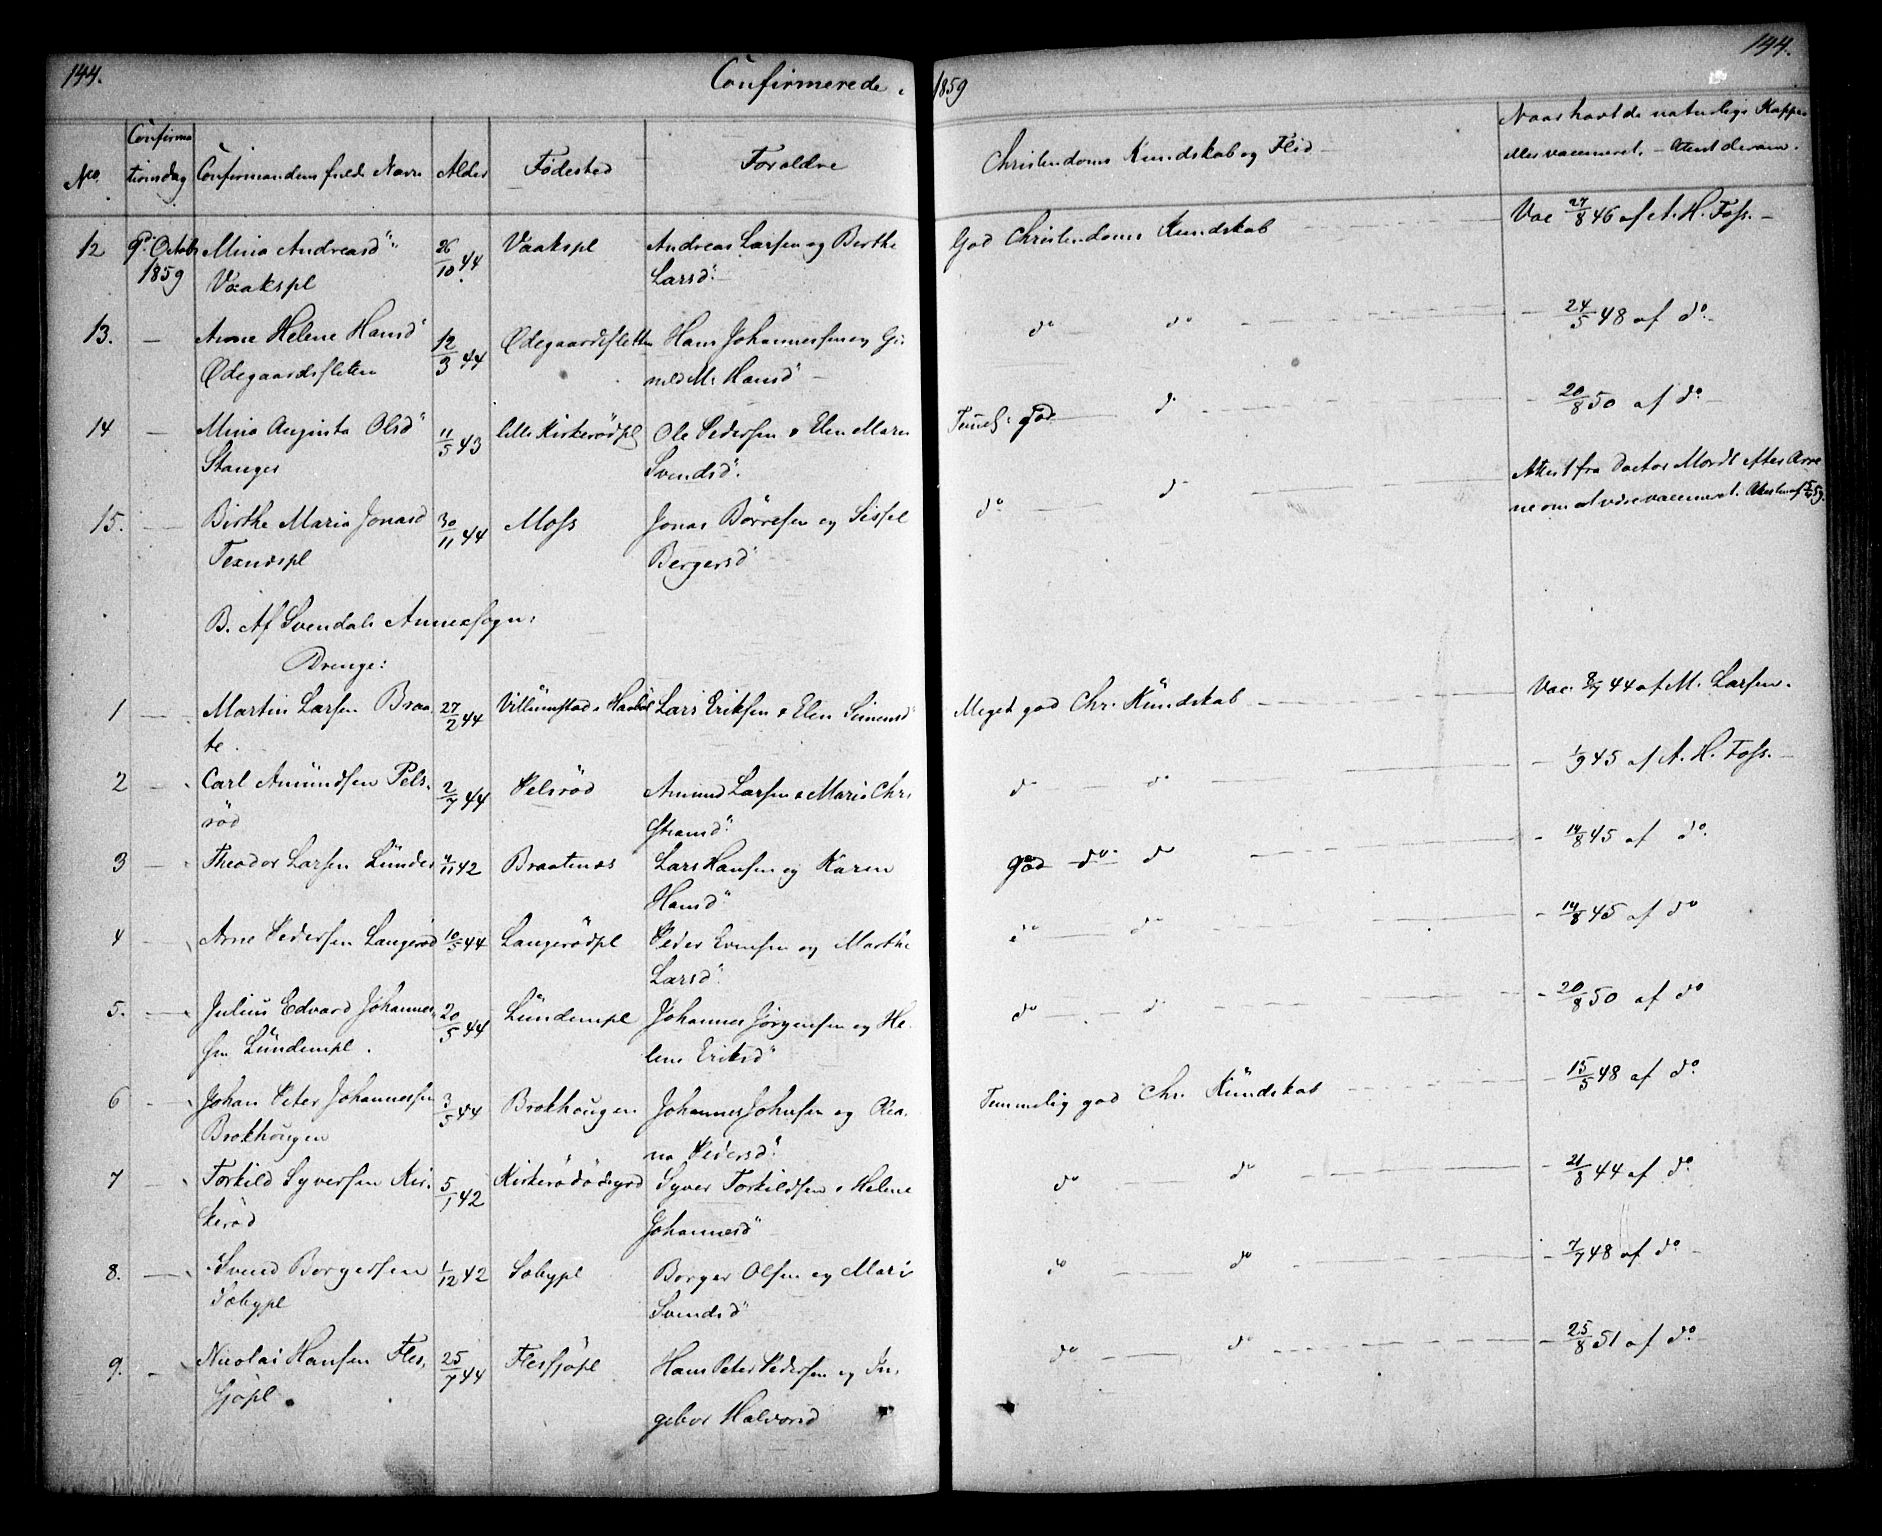 144.
Confirmerede i 1859
144.
No.
Confirma
tionsdag
Confirmandens fulde Navn
Alder
Fødested
Forældre
Christendoms Kundskab og Flid
Naar havt de naturlige Kopper
eller vaccineret. – Attest derom.
12
9de Octob
1859
Mina Andreasd"
Vaakspl
26/10 44
Vaakspl
Andreas Larsen og Birthe
Larsd"
God Christendoms Kundskab
Vac 27/8 46 af A. H. Foss. –
13. –
Anne Helene Hansd"
Ødegaardssletten
12/3 44
Ødegaardssletten
Hans Johannessen og Gu
nild M. Hansd" –
do do
– 24/5 48 af do –
14 –
Mina Augusta Olsd"
Stanger
11/5 43
lille Kirkerödpl
Ole Pedersen & Elen Marie
Svendsd".
Temel: god do
– 20/8 50 af do –
15. –
Birthe Maria Jonasd
30/11 44
Moss
Jonas Börresen og Sissel
Bergersd"
do do
Attest fra Doctor
vaccineret.
B. Af Svendals Annexsogn:
Drenge:
1 –
Martin Larsen Braa
te.
27/2 44
Lars Eriksen & Elen Simensd"
Meget god Chr. Kündskab
Vac. 8/7 44 af M. Larsen.
2 –
Carl Amündsen Pels
röd
2/7 44
Pelsröd
Amund Larsen & Marie Chri
stiansd".
do do
– 1/9 45 af A. H. Foss. –
3 –
Theodor Larsen Lünder
4/11 42
Braatenæs
Lars Hansen og Karen
Hansd"
god do do
– 14/8 45 af do.
4 –
Arne Pedersen Langeröd
10/5 44
Langerödpl
Peder Evensen og Marthe
Larsd".
do do
– 14/8 45 af do
5. –
Julius Edvard Johannes
sen Lündempl.
20/5 44
Lündempl
Johannes Jörgensen og He
lene Eriksd"
do do
– 20/8 50 af do
6 –
Johan Peter Johannessen
Brokhougen
3/5 44
Brokhougen
Johannes Johnsen og
na Pedersd".
Temmelig god Chr. Kündskab
– 15/5 48 af do.
7 –
Torkild Syversen Kir
keröd
5/1 42
Syver Torkildsen & Helene
Johannesd"
do do
– 21/8 44 af do.
8. –
Svend Borgersen
Sobypl
1/12 42
Sobypl
Borger Olsen og Mari
Svendsd"
do do
– 7/7 48 af do –
9. –
Nicolai Hansen Fles
sjöpl.
25/7 44
Flessjöpl
Hans Peter Pedersen og In
gebor Halvorsd
do do
– 25/8 51 af do –